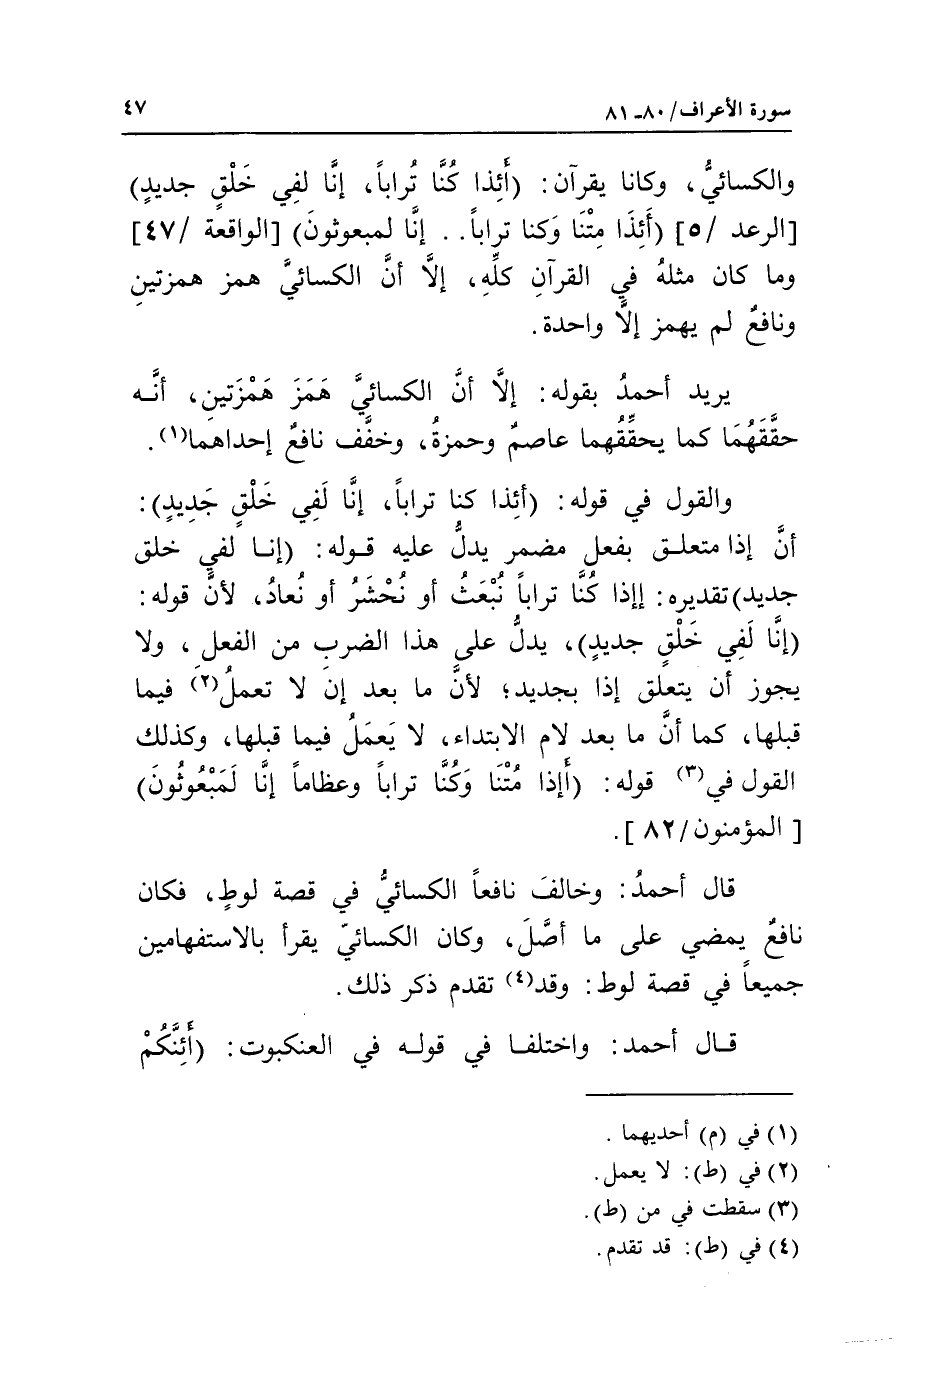 سورة الأعراف/ ٨٠ـ ٨١ ٤٧
والكسائيُّ، وكانا يقرآن: (أَئِذا كُنَّا تُراباً، إنَّا لفِي خَلْقٍ جديدٍ)
[الرعد /٥] (أَئِذَا مِتْنَا وَكنا تراباً. . إنَّا لمبعوثونَ) [الواقعة /٤٧]
وما كان مثلهُ في القرآنِ كلِّهِ، إلَّا أنَّ الكسائيَّ همز همزتينِ
ونافعٌ لم يهمز إلَّا واحدة.
يريد أحمدُ بقوله: إلَّا أنَّ الكسائيَّ هَمَزَ هَمْزَتينِ، أنَّه
حقَّقَهُمَا كما يحقِّقُهما عاصمٌ وحمزةُ، وخفَّف نافعٌ إحداهما(١).
والقول في قوله: (أئِذا كنا تراباً، إنَّا لَفِي خَلْقٍ جَدِيدٍ):
أنَّ إذا متعلـق بفعلٍ مضمر يدلُّ عليه قـوله: (إنـا لفي خلق
جديد)تقديره: إإذا كُنَّا تراباً نُبْعَثُ أو نُحْشَرُ أو نُعادُ، لأنَّ قوله:
(إنَّا لَفِي خَلْقٍ جديدٍ)، يدلُّ على هذا الضربِ من الفعلِ ، ولا
يجوز أن يتعلق إذا بجديد؛ لأنَّ ما بعد إن لا تعملُ(٢) فيما
قبلها، كما أنَّ ما بعد لام الابتداء، لا يَعمَلُ فيما قبلها، وكذلك
القول في(٣) قوله: (أَإذا مُتْنَا وَكُنَّا تراباً وعظاماً إنَّا لَمَبْعُوثُونَ)
[ المؤمنون/ ٨٢ ].
قال أحمدُ: وخالفَ نافعاً الكسائيُّ في قصة لوطٍ، فكان
نافعٌ يمضي على ما أصَّلَ، وكان الكسائيّ يقرأ بالاستفهامين
جميعاً في قصة لوط: وقد(٤) تقدم ذكر ذلك.
قـال أحمد: واختلفـا في قولـه في العنكبوت: (أَئِنَّكُمْ
(١) في (م) أحديهما .
(٢) في (ط): لا يعمل.
(٣) سقطت في من (ط).
(٤) في (ط): قد تقدم.